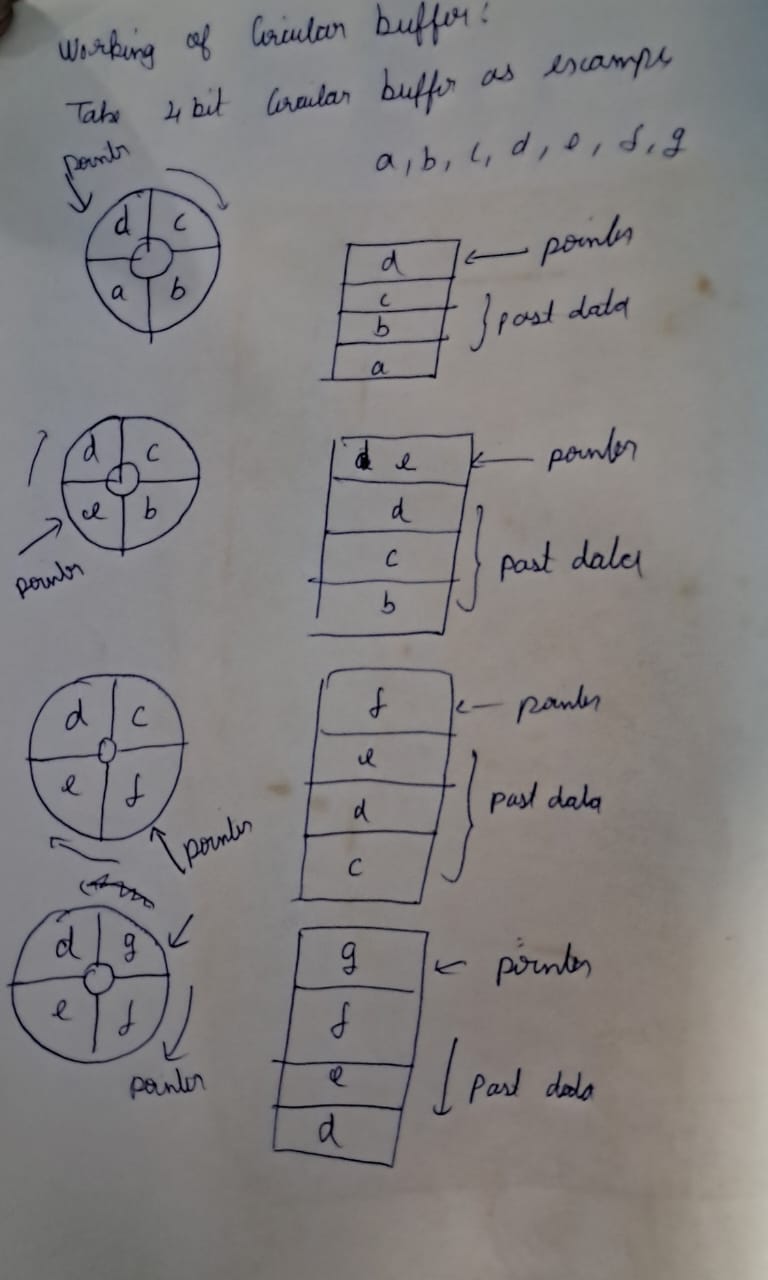 Working of Circular buffer:
Take 4 bit Circular buffer as example
a, b, c, d, e, f, g
pointer
d c
a b
d ← pointer
c
b } past data
a
d c
e b
pointer
e ← pointer
d
c } past data
b
d c
e f
pointer
f ← pointer
e
d } past data
c
d g
e f
pointer
g ← pointer
f
e past data
d